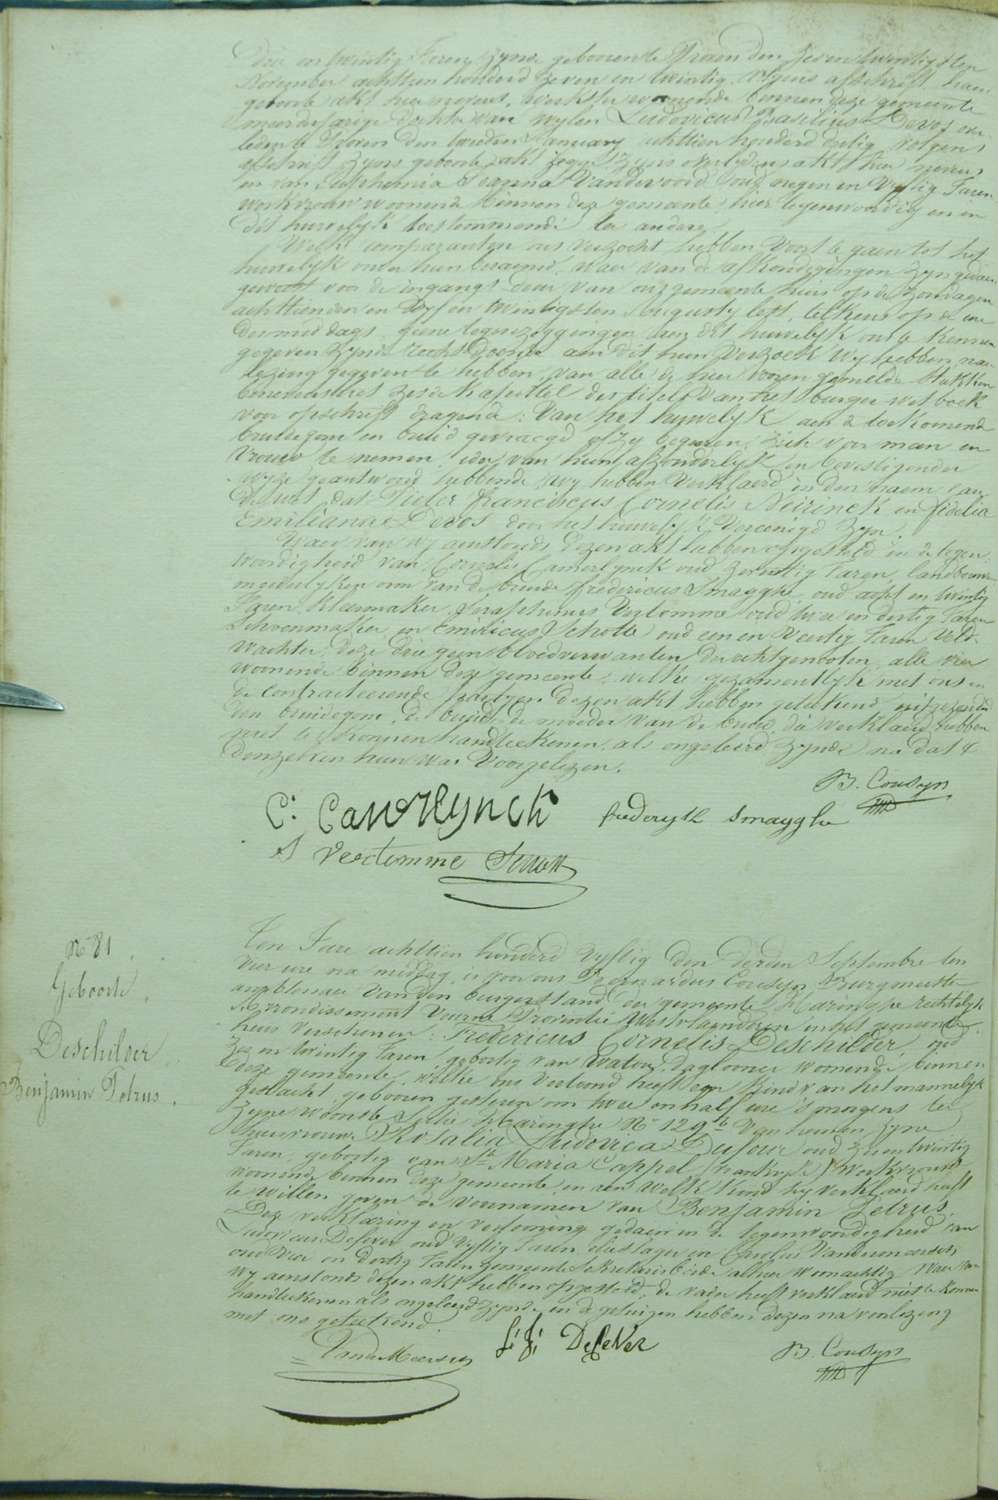 Drie en twintig Jaren zynde geboren te Proven den zeven twintigsten
November achttien honderd zeven en twintig, volgens afschrift haer
geboorte akt hier nevens, werksse woonende binnen deze gemeente
meerderjarige dochter van wylen Ludovicus Basilius Devos over-
leden te Proven den January achttien honderd dertig volgens
afschrift zyns akt hier nevens
en van Euphemia Regina Vandevoorde oud negen en vyftig Jaren
werkvrouw woonende binnen deze gemeente hier tegenwoordig en in
dit huwelyk toestemmende ter andere
Welke comparanten ons verzocht hebben voort te gaen tot het
huwelyk onder hun beraemd, waer van de afkondigingen zyn gedaen
geweest voor de ingangs deur van ons gemeente huis op de zondagen
achttienden en vyf en twintigsten Augusty lest, telkens op de ure
der middags, geene tegenzeggingen aen dit huwelyk ons te kennen
gegeven zynde recht doende aen dit hun verzoek wy hebben na
lezing gegeven te hebben van alle de hier voren gemelde stukken
benevens het zesde kapittel des titels van het burger wetboek
voor opschrift dragende: Van het huwelyk aen de toekomende
bruidegom en bruid gevraegd of zy begeeren zich voor man en
vrouw te nemen, ider van hun afzonderlyk en bevestigender
wyze geantwoord hebbende wy hebben verklaerd in den naem van
de wet, dat Pieter Franciscus Cornelis Neirinck en Fidelia
Emiliana Devos door het huwelyk vereenigd zyn.
Waer van wy aenstonds dezen akt hebben opgesteld in de tegen-
woordigheid van Cornelis Camerlynck oud zeventig Jaren, landbouwer
moederlyken oom van de bruid Fredericus Smagghe oud acht en twintig
Jaren Kleermaker, Seraphinus Verlomme oud twee en dertig Jaren
Schoenmaker en Emericus Schotte oud een en veertig Jaren Veld-
wachter, deze drie geen bloedverwanten der echtgenooten, alle vier
woonende binnen deze gemeente; welke gezamentlyk met ons en
de contracteerende partyen dezen akt hebben geteekend, uitgezonderd
den bruidegom, de bruid, de moeder van de bruid, die verklaerd hebben
niet te konnen handteekenen, als ongeleerd zynde na dat
denzelven hun was voorgelezen.
B. Cousyn
C: Camerlynck frederyck Smagghe
S Verlomme Schotte
N° 81.
Geboorte
Deschilder
Benjamin Petrus.
Ten Jare achttien honderd vyftig den derden Septembre ten
vier ure na middag, is voor ons Bernardus Cousyn Burgmeester
ambtenaer van den burgerstand der gemeente Haringhe rechterlyk
Arrondissement Veurne Provintie Westvlaenderen in het gemeente
huis verschenen: Fredericus Cornelis Deschilder, oud
zes en twintig Jaren, geboortig van Watou, daglooner woonende binnen
deze gemeente, welke ons vertoond heeft een Kind van het mannelyk
geslacht, geboren gisteren om twee en half ure 's morgens ter
zyne woonste Sectie Haringhe N° 129 van hem en zyne
huisvrouw Rosalia Ludovica Dufour oud zes en twintig
Jaren, geboortig van Ste Maria Cappel, (frankryk) Werkvrouw
woonende binnen deze gemeente en aen welk Kind hy verklaerd heeft
te willen geven de voornamen van Benjamin Petrus.
Deze verklaring en vertooning gedaen in de tegenwoordigheid van
Ludovicus Desever oud vyftig Jaren, en Carolus Vandromeersch,
oud vier en dertig Jaren gemeente Sekretaris beide alhier woonachtig Waer van
wy aenstonds dezen akt hebben opgesteld, de vader heeft verklaerd niet te konnen
handteekenen als ongeleerd zynde en de getuigen hebben dezen na voorlezing
met ons geteekend.
L: J: DeseVer
B. Cousyn